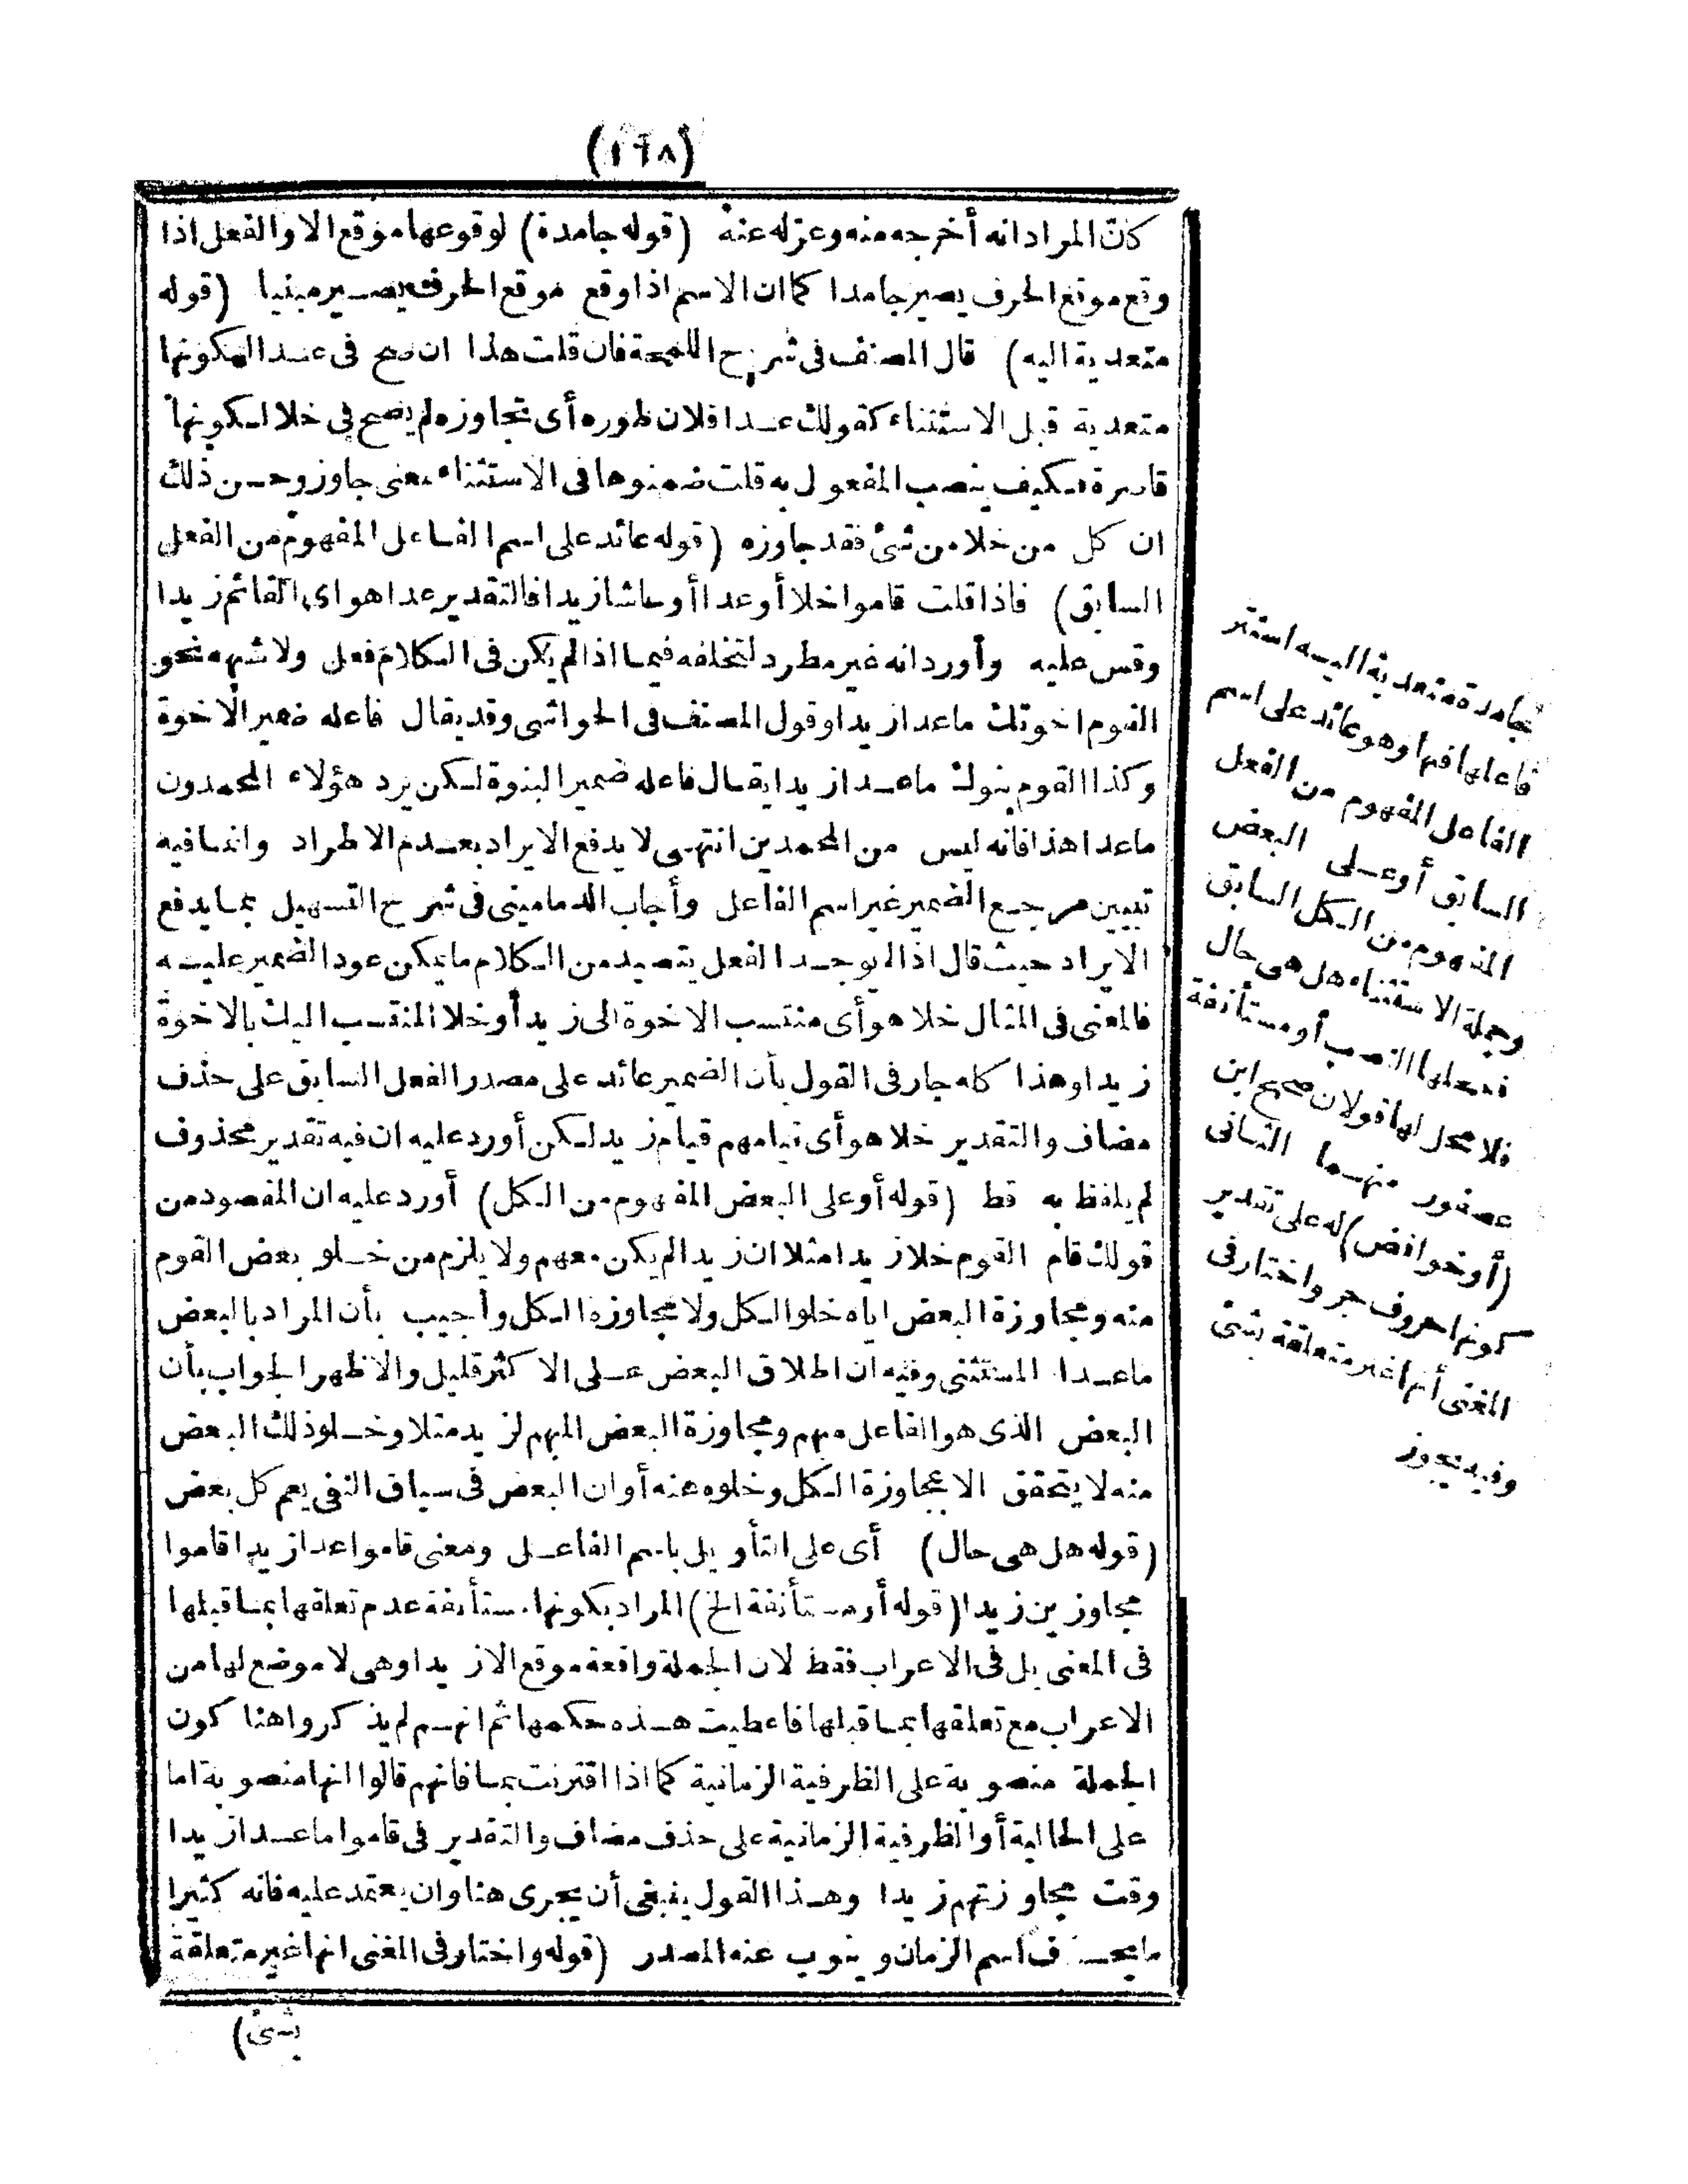 (١٦٨)
كان المراد انه أخرجه منه وعزله عنه (قوله جامدة) لوقوعها موقع الا والفعل اذا
وقع موقع الحرف يصير جامدا كما ان الاسم اذا وقع موقع الحرف يصير مبنيا (قوله
متعدية اليه) قال المصنف فى شرح اللمحة فان قلت هذا ان صح فى عدا لكونها
متعدية قبل الاستثناء كقولك عدا فلان طوره أى تجاوزه لم يصح فى خلا لكونها
قاصرة فكيف ينصب المفعول به قلت ضمنوها فى الاستثناء معنى جاوز وحسن ذلك
ان كل من خلا من شئ فقد جاوزه (قوله عائد على اسم الفاعل المفهوم من الفعل
السابق) فاذا قلت قاموا خلا أو عدا أو حاشا زيدا فالتقدير عدا هو اى القائم زيدا
وقس عليه وأورد انه غير مطرد لتخلفه فيما اذا لم يكن فى الكلام فعل ولا شبهه نحو
القوم اخوتك ما عدا زيدا وقول المصنف فى الحواشى وقد يقال فاعله ضمير الاخوة
وكذا القوم بنوك ما عدا زيدا يقال فاعله ضمير البنوة لكن يرد هؤلاء المحمدون
ما عدا هذا فانه ليس من المحمدين انتهى لا يدفع الايراد بعدم الاطراد وانما فيه
تبيين مرجع الضمير غير اسم الفاعل وأجاب الدمامينى فى شرح التسهيل بما يدفع
الايراد حيث قال اذا لم يوجد الفعل يتصيد من الكلام ما يمكن عود الضمير عليه
فالمعنى فى المثال خلا هو أى منتسب الاخوة الى زيد أو خلا المنتسب اليك بالاخوة
زيدا وهذا كله جار فى القول بأن الضمير عائد على مصدر الفعل السابق على حذف
مضاف والتقدير خلا هو أى قيامهم قيام زيد لكن أورد عليه ان فيه تقدير محذوف
لم يلفظ به قط (قوله أو على البعض المفهوم من الكل) أورد عليه ان المقصود من
قولك قام القوم خلا زيدا مثلا ان زيدا لم يكن معهم ولا يلزم من خلو بعض القوم
منه ومجاوزة البعض اياه خلو الكل ولا مجاوزة الكل وأجيب بأن المراد بالبعض
ما عدا المستثنى وفيه ان اطلاق البعض على الا كثر قليل والاظهر الجواب بأن
البعض الذى هو الفاعل مبهم ومجاوزة البعض المبهم لزيد مثلا وخلو ذلك البعض
منه لا يتحقق الا بمجاوزة الكل وخلوه عنه أو ان البعض فى سياق النفى يعم كل بعض
(قوله هل هى حال) أى على التأويل باسم الفاعل ومعنى قاموا عدا زيدا قاموا
مجاوزين زيدا (قوله أو مستأنفة الخ) المراد بكونها مستأنفة عدم تعلقها بما قبلها
فى المعنى بل فى الاعراب فقط لان الجملة واقعة موقع الا زيدا وهى لا موضع لها من
الاعراب مع تعلقها بما قبلها فاعطيت هذه حكمها ثم انهم لم يذكروا هنا كون
الجملة منصوبة على الظرفية الزمانية كما اذا اقترنت بما فانهم قالوا انها منصوبة اما
على الحالية أو الظرفية الزمانية على حذف مضاف والتقدير فى قاموا ما عدا زيدا
وقت مجاوزتهم زيدا وهذا القول ينبغى أن يجرى هنا وان يعتمد عليه فانه كثيرا
ما يحذف اسم الزمان وينوب عنه المصدر (قوله واختار فى المغنى انها غير متعلقة
بشئ)
جامدة متعدية اليه استتر
فاعلها فيها وهو عائد على اسم
الفاعل المفهوم من الفعل
السابق أو على البعض
المفهوم من الكل السابق
وجملة الاستثناء هل هى حال
فمحلها النصب أو مستأنفة
فلا محل لها قولان صحح ابن
عصفور منهما الثانى
(أو خوافض) له على تقدير
كونها حروف جر واختار فى
المغنى أنها غير متعلقة بشئ
وفيه تجوز